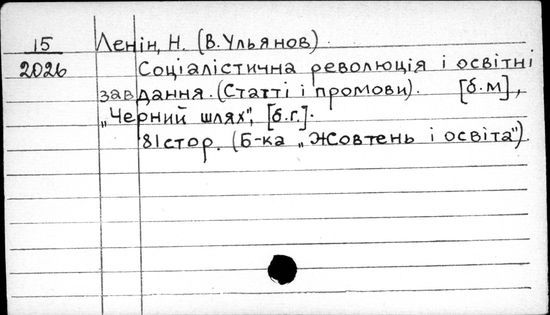 15 Ленін, Н. (В. Ульянов)
2026 Соціалістична революція і освітні
завдання. (Статті і промови). [б.м],
„Черний шлях", [б.г.].
81 стор. (Б-ка „Жовтень і освіта").